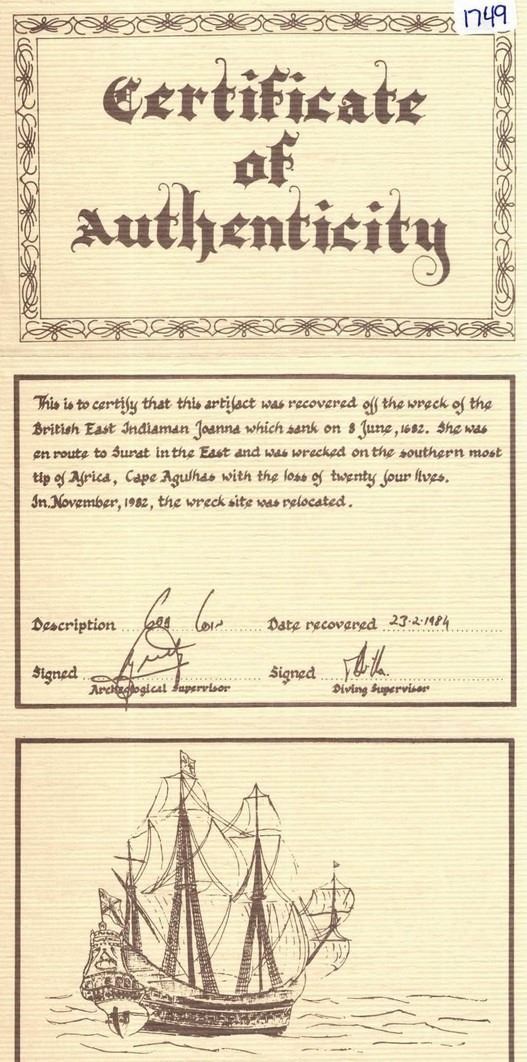 1749
Certificate
of
Authenticity
This is to certify that this artifact was recovered off the wreck of the
British East Indiaman Joanna which sank on 8 June, 1682. She was
en route to Surat in the East and was wrecked on the southern most
tip of Africa, Cape Agulhas with the loss of twenty four lives.
In November, 1982, the wreck site was relocated.
Description Cob Coin Date recovered 23-2-1984
Signed Signed
Archeological Supervisor Diving Supervisor